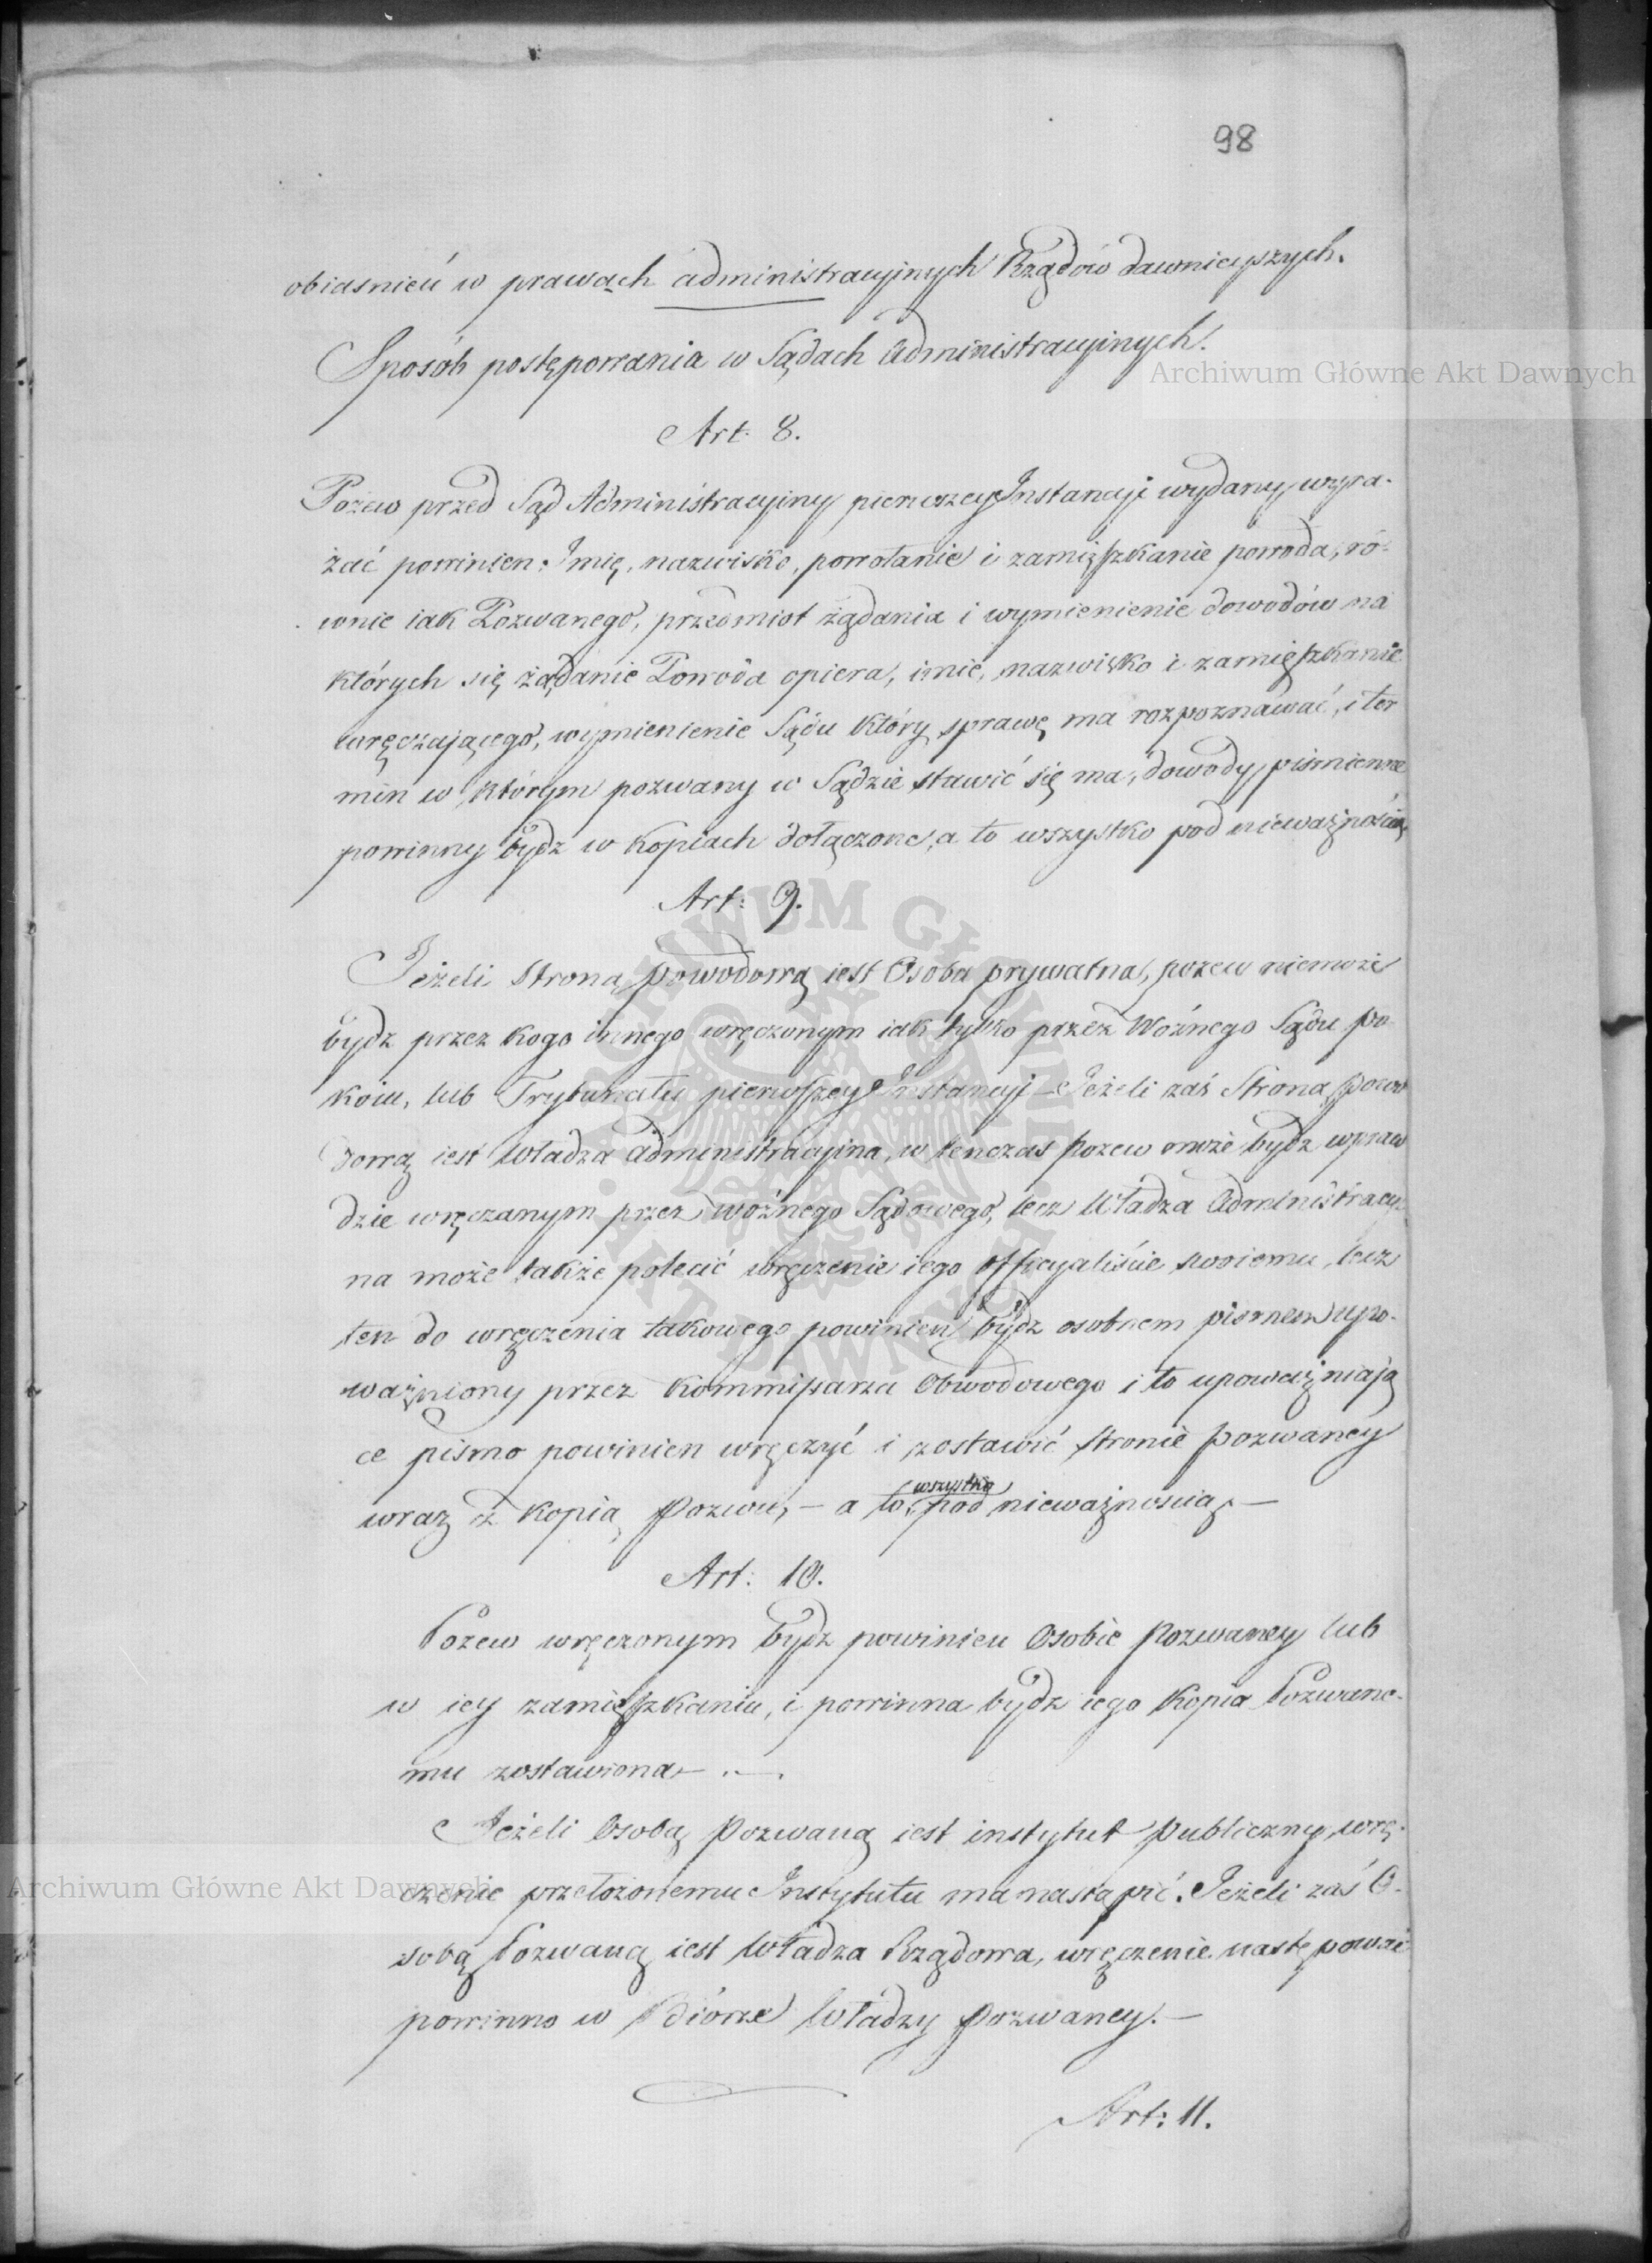 98
obiasnień w prawach administracyinych Rządów dawnieyszych.
Sposób postępowania w Sądach Administracyinych.
Art: 8.
Pozew przed Sąd Administracyiny pierwszey Instancyi wydany wyra-
żać powinien: Imię, nazwisko, powołanie i zamięszkanie powoda, ró-
wnie iak Pozwanego, przedmiot żądania i wymienienie dowodów na
których się żądanie Powoda opiera, imie, nazwisko i zamięszkanie
wręczaiącego, wymienienie Sądu który sprawę ma rozpoznawać, i ter
min w którym pozwany w Sądzie stawić się ma, dowody piśmienne
powinny bydź w kopiach dołączone, a to wszystko pod nieważnością.
Art: 9.
Jeżeli Stroną powodową iest Osoba prywatna, pozew niemoże
bydz przez kogo innego wręczonym iak tylko przez Woźnego Sądu po-
koiu, lub Trybunału pierwszey Instancyi – Jeżeli zaś Stroną powo
dową iest Władza administracyina, w tenczas pozew może bydz wpraw
dzie wręczanym przez woźnego Sądowego, lecz Władza Administracyi-
na może także polecić wręczenie iego officyaliście swoiemu, lecz
ten do wręczenia takowego powinien bydz osobnem pismem upo-
ważniony przez Kommissarza Obwodowego i to upoważniaią
ce pismo powinien wręczyć i zostawić stronie pozwaney
wraz z kopią Pozwu, – a to wszystko pod nieważnością. –
Art: 10.
Pozew wręczonym bydz powinien Osobie Pozwaney lub
w iey zamięszkaniu, i powinna bydz iego Kopia Pozwane-
mu zostawiona – . –.
Jeżeli Osobą Pozwaną iest instytut Publiczny, wrę-
czenie przełożonemu Instytutu ma nastąpić. Jeżeli zaś O-
sobą Pozwaną iest Władza Rządowa, wręczenie następować
powinno w Biórze Władzy Pozwaney. –
Art: 11.
Archiwum Główne Akt Dawnych
Archiwum Główne Akt Dawnych
ARCHIWUM GŁÓWNE · AKT DAWNYCH ·